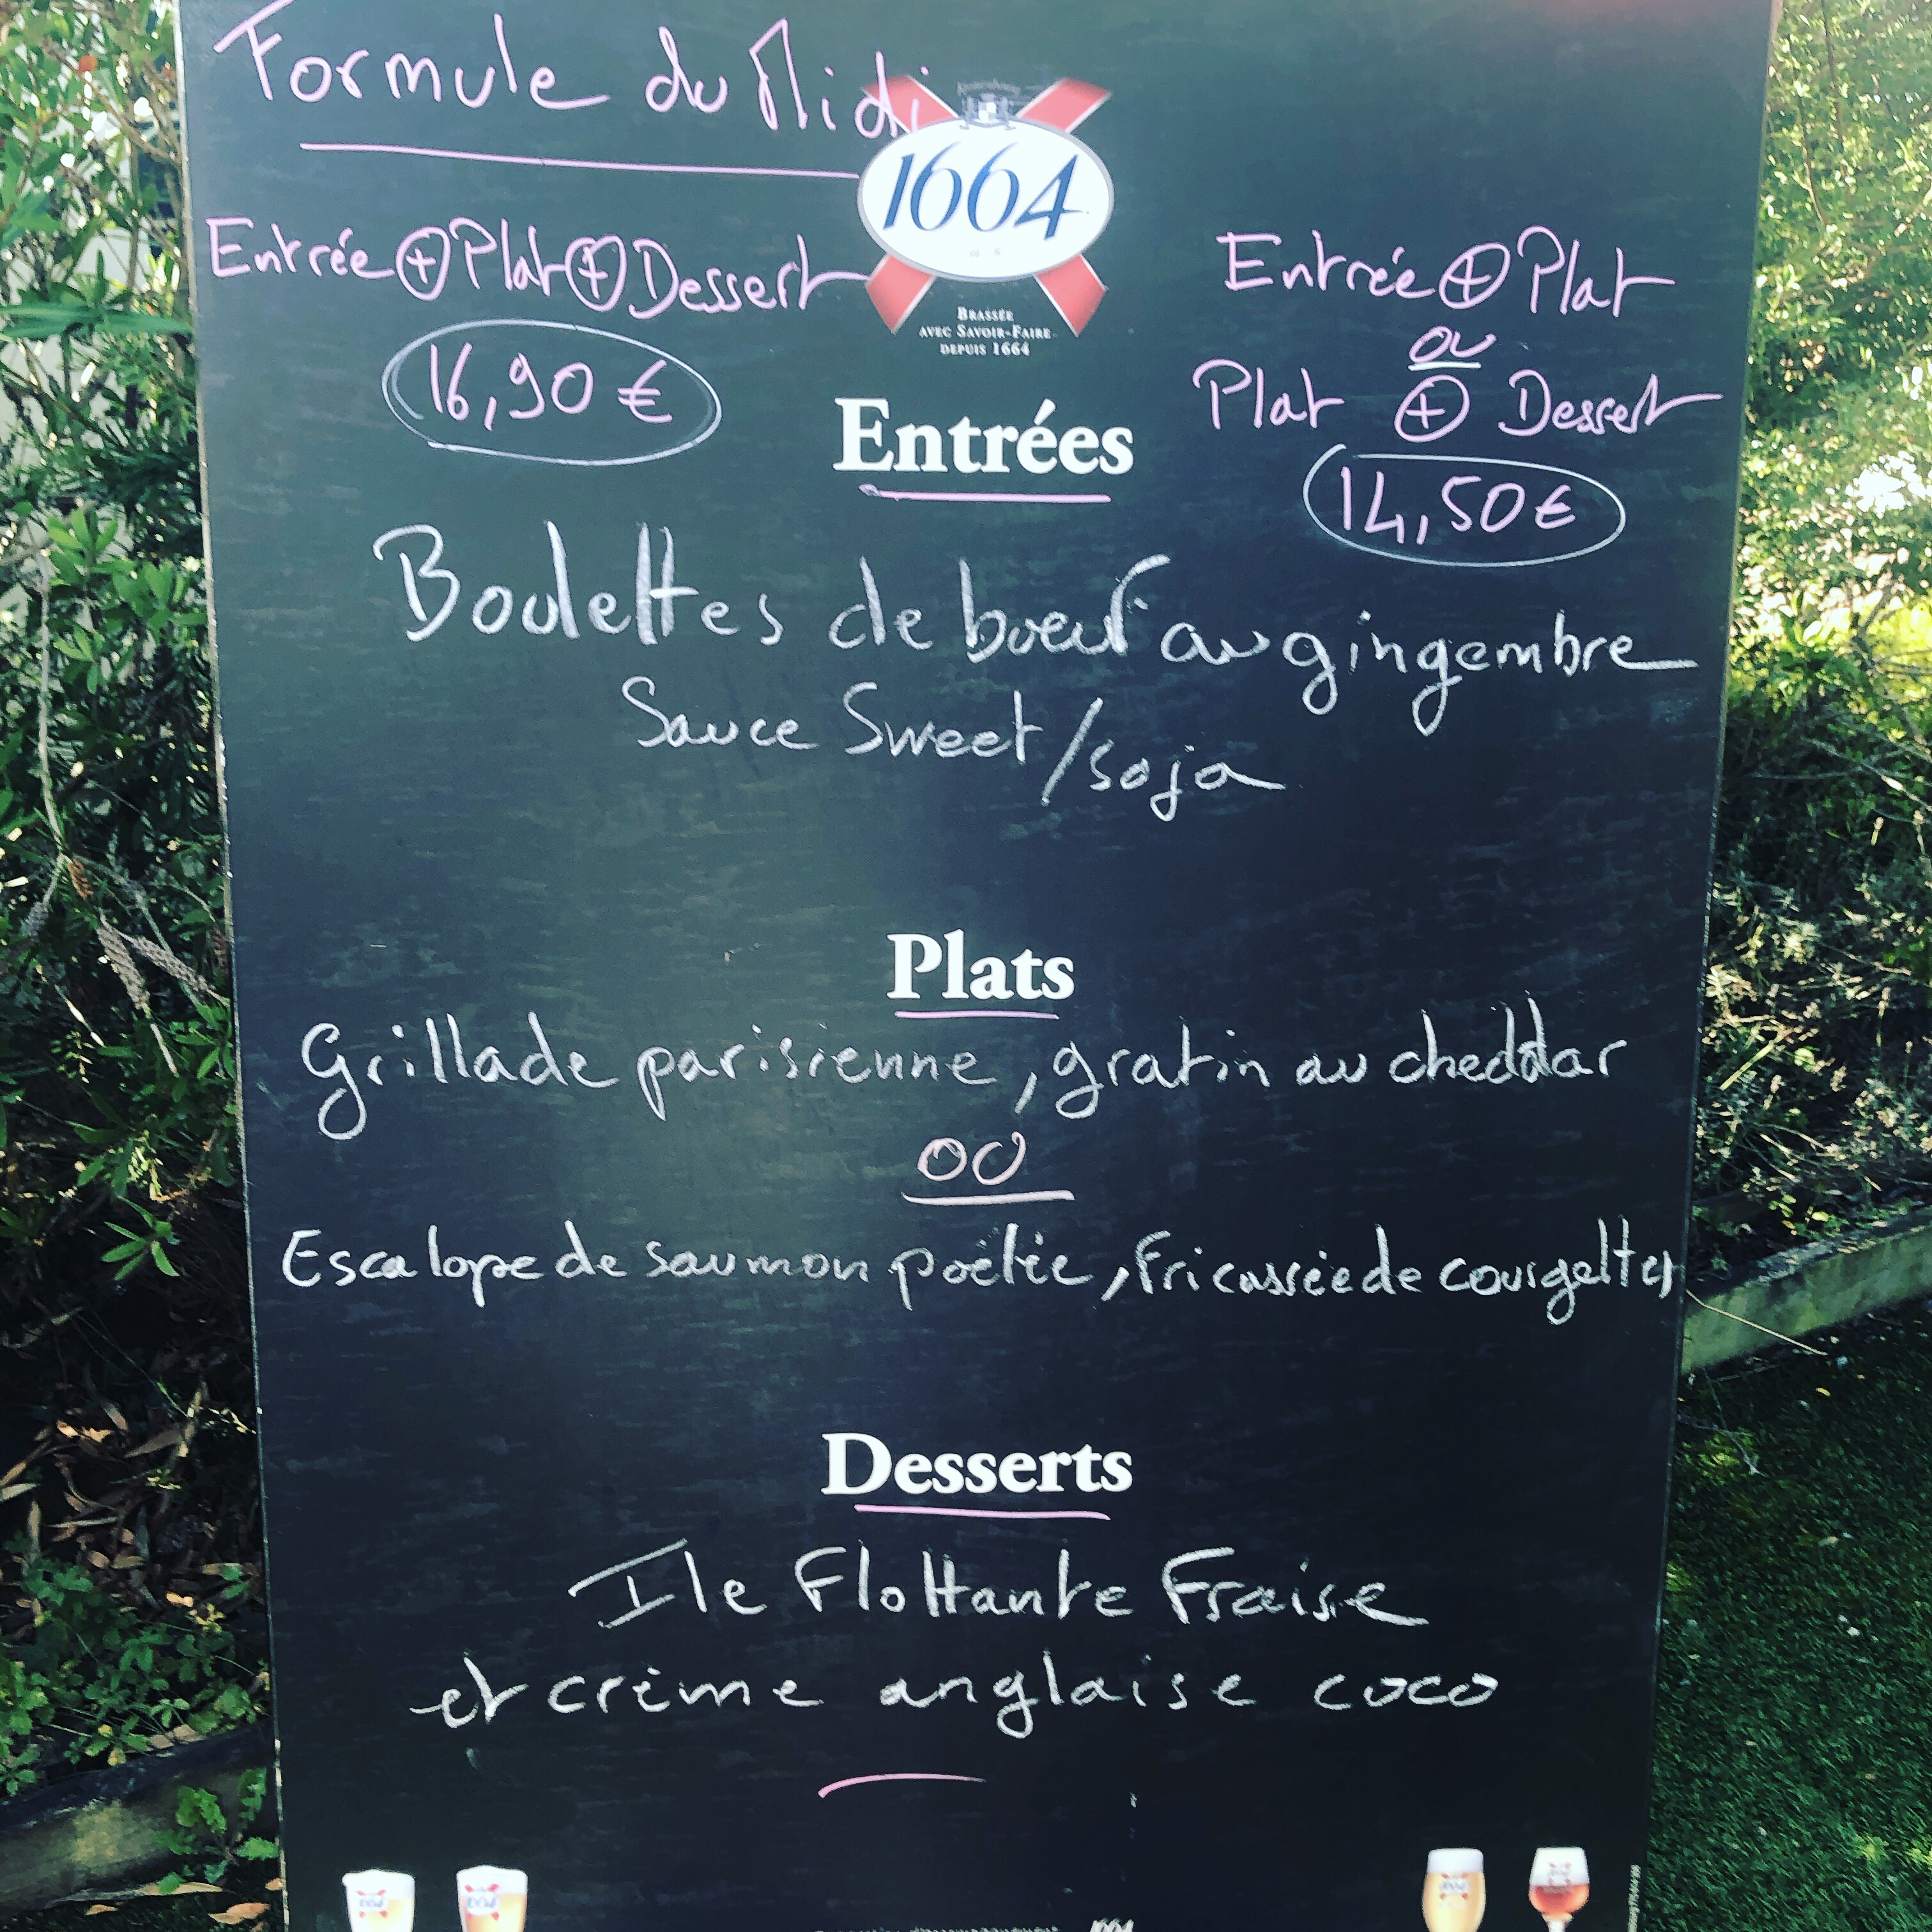 Formule du Midi
1664
BRASSÉE
AVEC SAVOIR-FAIRE
DEPUIS 1664
Entrée + Plat + Dessert
16,90 €
Entrée + Plat
ou
Plat + Dessert
14,50 €
Entrées
Boulettes de boeuf au gingembre
Sauce Sweet/soja
Plats
Grillade parisienne, gratin au cheddar
OU
Escalope de saumon poêlée, fricassée de courgettes
Desserts
Ile Flottante Fraise
et crème anglaise coco
1664
1664
1664
1664
1664